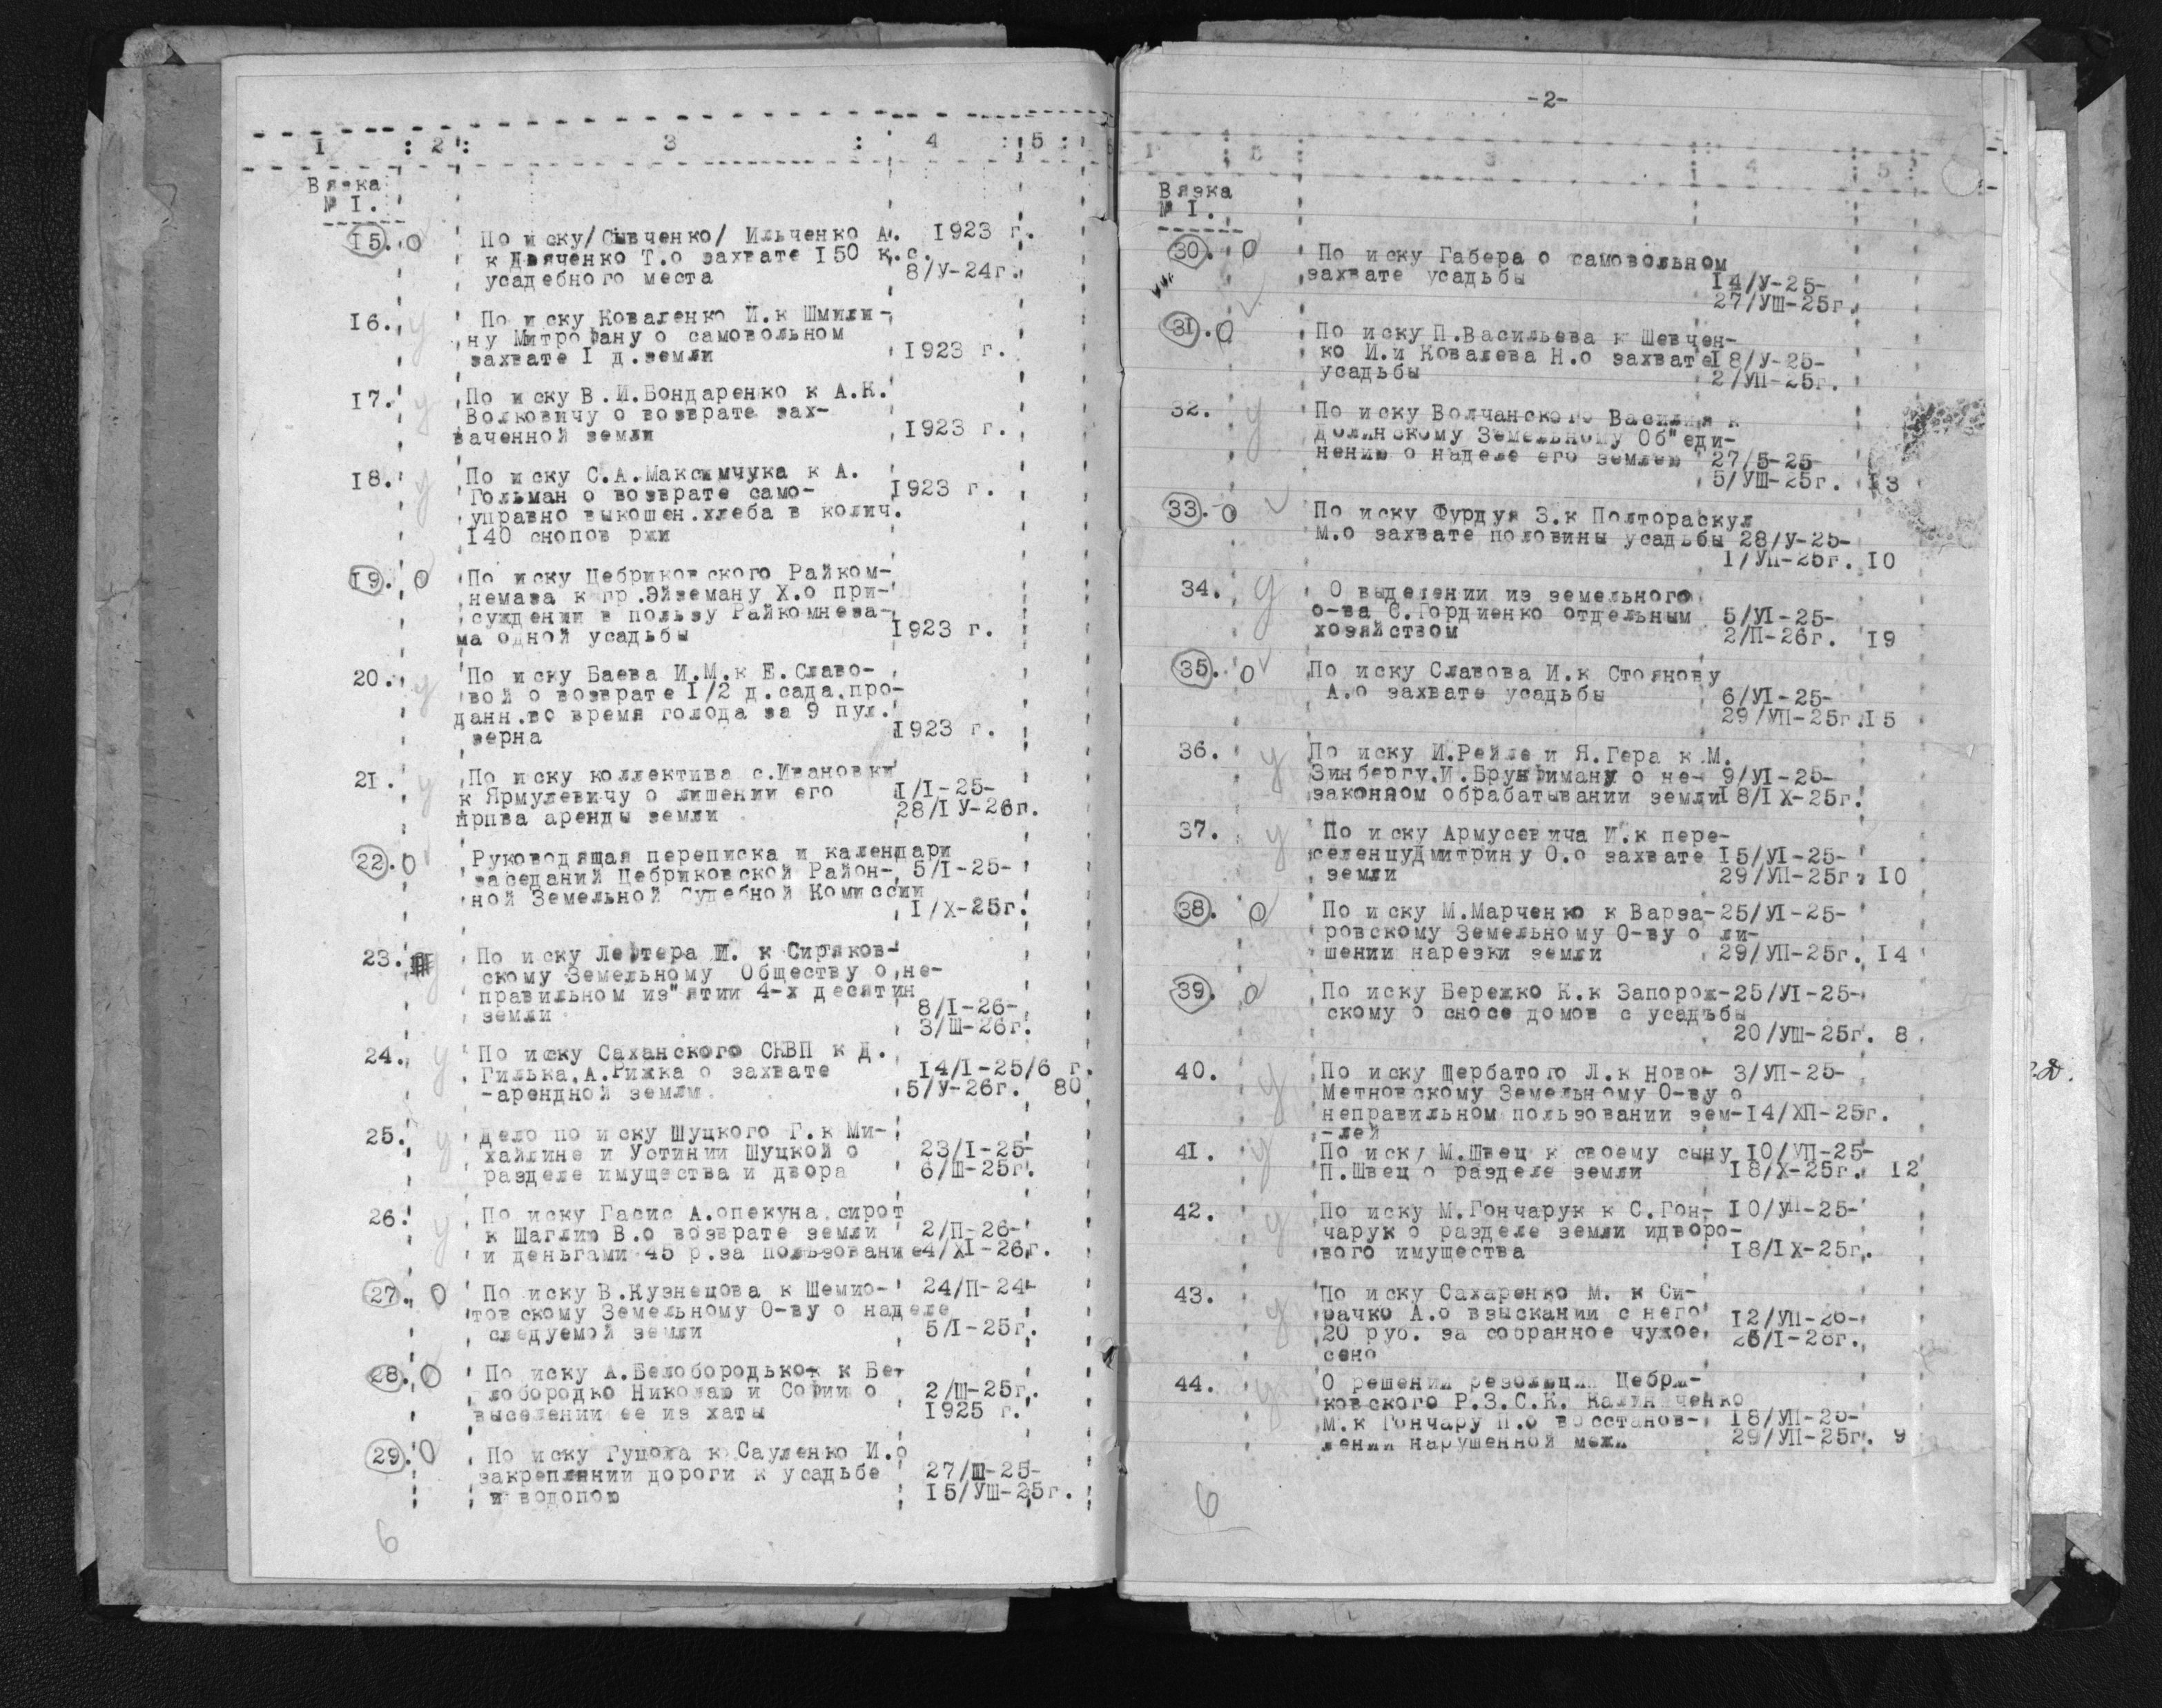 I : 2 : 3 : 4 : 5 :
Вязка
№ I.
15. О По иску/Сывченко/ Ильченко А. 1923 г.
к Дьяченко Т.о захвате 150 к.с.
усадебного места 8/У-24г.
16. у По иску Коваленко И.к Шмили-
ну Митрофану о самовольном
захвате I д.земли 1923 г.
17. у По иску В.И.Бондаренко к А.К.
Волковичу о возврате зах-
ваченной земли 1923 г.
18. у По иску С.А.Максимчука к А.
Гольман о возврате само- 1923 г.
управно выкошен.хлеба в колич.
140 снопов ржи
19. О По иску Цебриковского Райком-
немаза к гр.Эйземану Х.о при-
суждении в пользу Райкомнеза-
ма одной усадьбы 1923 г.
20. у По иску Баева И.М.к Е.Славо-
вой о возврате I/2 д.сада,про-
данн.во время голода за 9 пуд.
зерна 1923 г.
21. у По иску коллектива с.Ивановки
к Ярмулевичу о лишении его I/I-25-
прпва аренды земли 28/IУ-26г.
22. О Руководящая переписка и календари
заседаний Цебриковской Район- 5/I-25-
ной Земельной Судебной Комиссии
I/Х-25г.
23. у По иску Лефтера И. к Сиртяков-
скому Земельному Обществу о не-
правильном из"ятии 4-х десятин
земли 8/I-26-
3/Ш-26г.
24. у По иску Саханского СКВП к Д.
Гилька,А.Рижка о захвате 14/I-25/6 г.
-арендной земли. 5/У-26г. 80
25. у Дело по иску Шуцкого Г.к Ми-
хайлине и Устинии Шуцкой о 23/I-25-
разделе имущества и двора 6/Ш-25г.
26. у По иску Гасис А.опекуна сирот
к Шаглию В.о возврате земли 2/П-26-
и деньгами 45 р.за пользование4/ХI-26г.
27. О По иску В.Кузнецова к Шемио- 24/П-24-
товскому Земельному О-ву о наделе
следуемой земли 5/I-25г.
28. О По иску А.Белобородько к Бе-
лобородко Николаю и Софии о 2/Ш-25г.
выселении ее из хаты 1925 г.
29. О По иску Гуцола к Сауленко И.о
закреплянии дороги к усадьбе 27/Ш-25-
и водопою 15/УШ-25г.
6
-2-
I 2 3 4 5
Вязка
№ I.
30. О По иску Габера о самовольном
захвате усадьбы 14/У-25-
27/УШ-25г.
31. О По иску П.Васильева к Шевчен-
ко И.и Ковалева Н.о захвате18/У-25-
усадьбы 2/УП-25г.
32. у По иску Волчанского Василия к
Долинскому Земельному Об"еди-
нению о наделе его землею 27/5-25-
5/УШ-25г. 13
33. О По иску Фурдуя З.к Полтораскул
М.о захвате половины усадьбы 28/У-25-
1/УП-25г. 10
34. у О выделении из земельного
о-ва С.Гордиенко отдельным 5/УI-25-
хозяйством 2/П-26г. 19
35. О По иску Славова И.к Стоянову
А.о захвате усадьбы 6/УI-25-
29/УП-25г.15
36. у По иску И.Рейле и Я.Гера к М.
Зинбергу,И.Брунфиману о не- 9/УI-25-
законяом обрабатывании земли18/IХ-25г.
37. у По иску Армусевича И.к пере-
селенцуДмитрину О.о захвате 15/УI-25-
земли 29/УП-25г. 10
38. О По иску М.Марченко к Варза-25/УI-25-
ровскому Земельному О-ву о ли-
шении нарезки земли 29/УП-25г. 14
39. О По иску Бережко К.к Запорож-25/УI-25-
скому о сносе домов с усадьбы
20/УШ-25г. 8
40. у По иску Щербатого Л.к Ново- 3/УП-25-
Метновскому Земельному О-ву о
неправильном пользовании зем-14/ХП-25г.
-лей
41. у По иску М.Швец к своему сыну 10/УП-25-
П.Швец о разделе земли 18/Х-25г. 12
42. у По иску М.Гончарук к С.Гон- 10/УП-25-
чарук о разделе земли идворо-
вого имущества 18/IХ-25г.
43. у По иску Сахаренко М. к Си-
рачко А.о взыскании с него 12/УП-26-
20 руб. за собранное чужое 26/I-28г.
сено
44. у О решении резолюции Цебри-
ковского Р.З.С.К. Калиниченко
М.к Гончару П.о восстанов- 18/УП-25-
лении нарушенной межи 29/УП-25г. 9
6